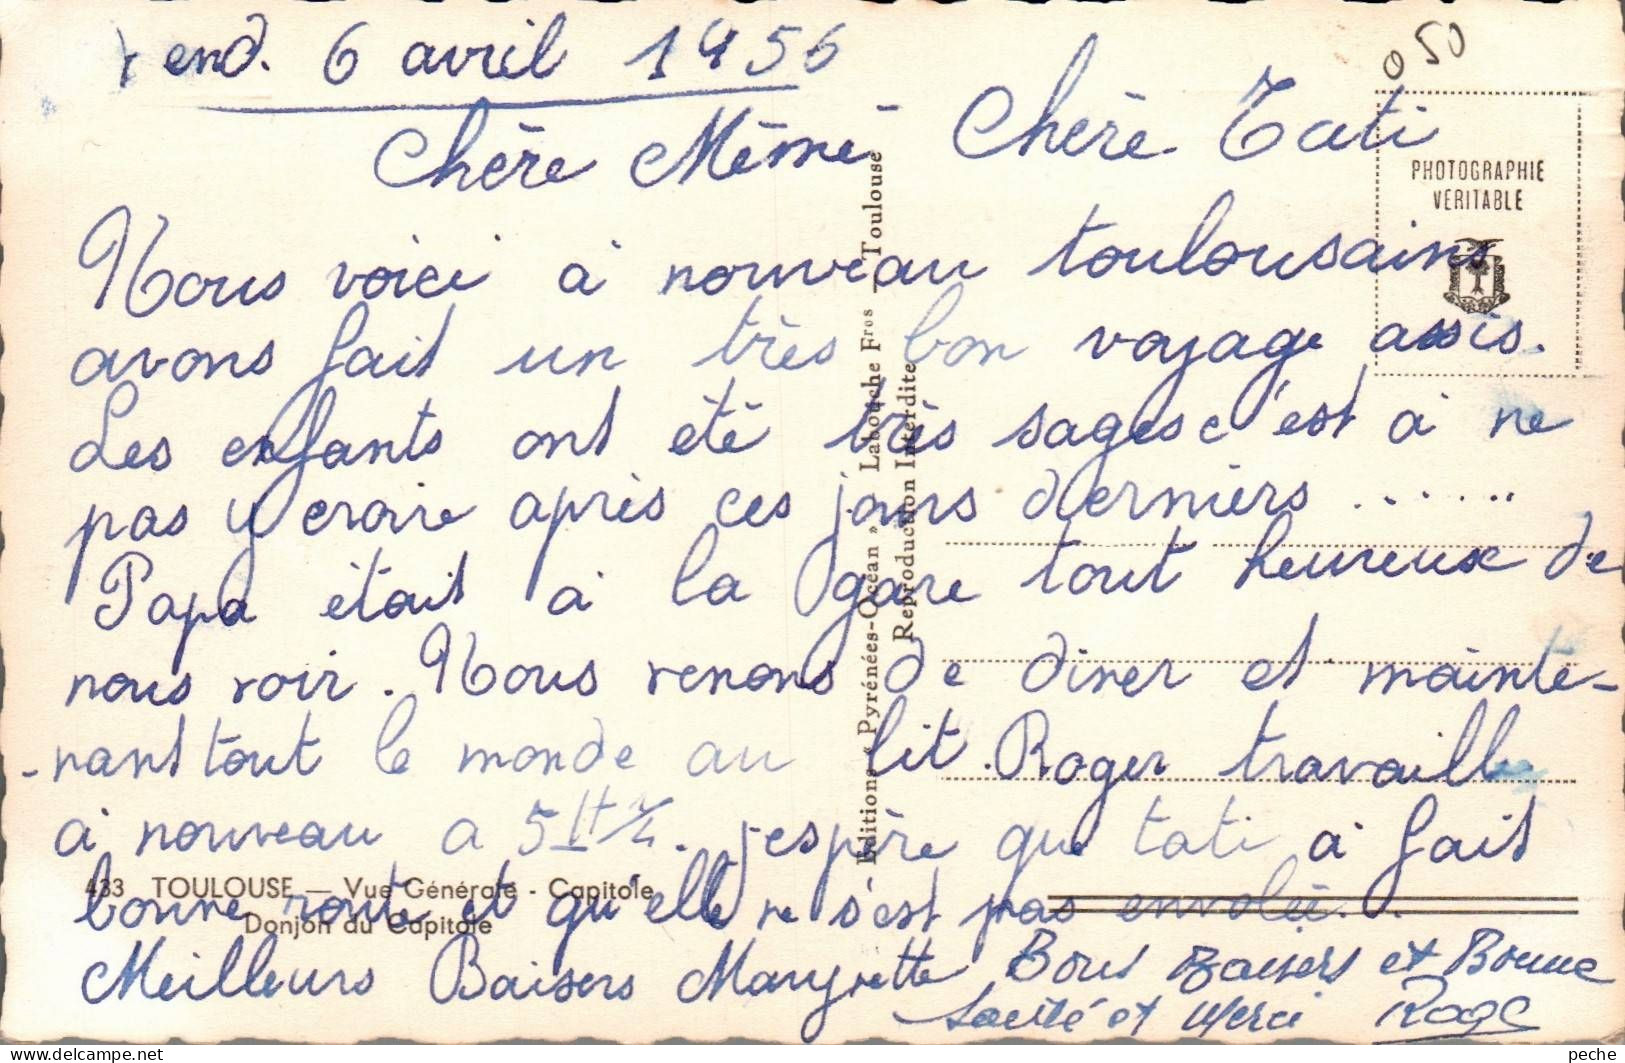 Vend. 6 avril 1956
050
Chère Mémé - Chère Tati
PHOTOGRAPHIE
VERITABLE
Nous voici à nouveau toulousains
avons fait un très bon voyage assis.
Les enfants ont été très sages c'est à ne
pas y croire après ces jours derniers ......
Papa était à la gare tout heureux de
nous voir. Nous venons de diner et mainte-
-nant tout le monde au lit. Roger travaille
à nouveau a 5H ½. J'espère que tati à fait
bonne route et qu'elle ne s'est pas envolée.
Meilleurs Baisers Maryvette
Bons Baisers et Bonne
Santé et Merci Roge
433 TOULOUSE — Vue Générale - Capitole
Donjon du Capitole
Editions « Pyrénées-Océan » Labouche Fres — Toulouse
Reproduction Interdite
peche